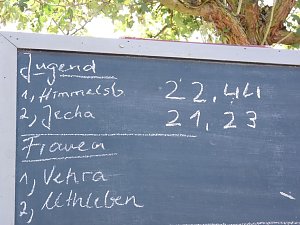 Jugend
1, Himmelsb 22,44
2, Jecha 21,23
Frauen
1, Vehra
2, Uthleben